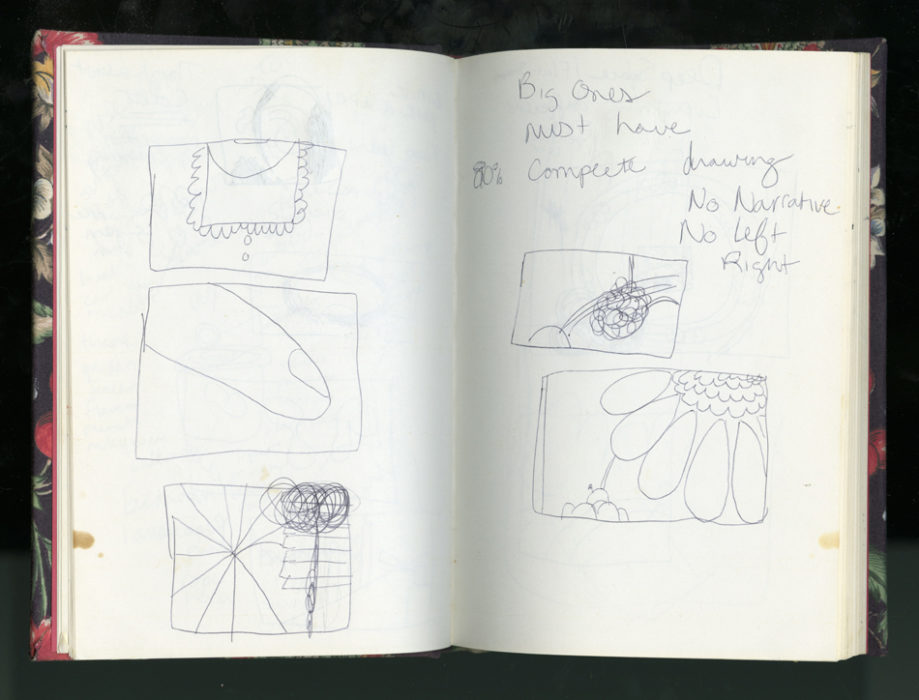 Big Ones
must have
80% Complete drawing
No Narrative.
No Left
Right